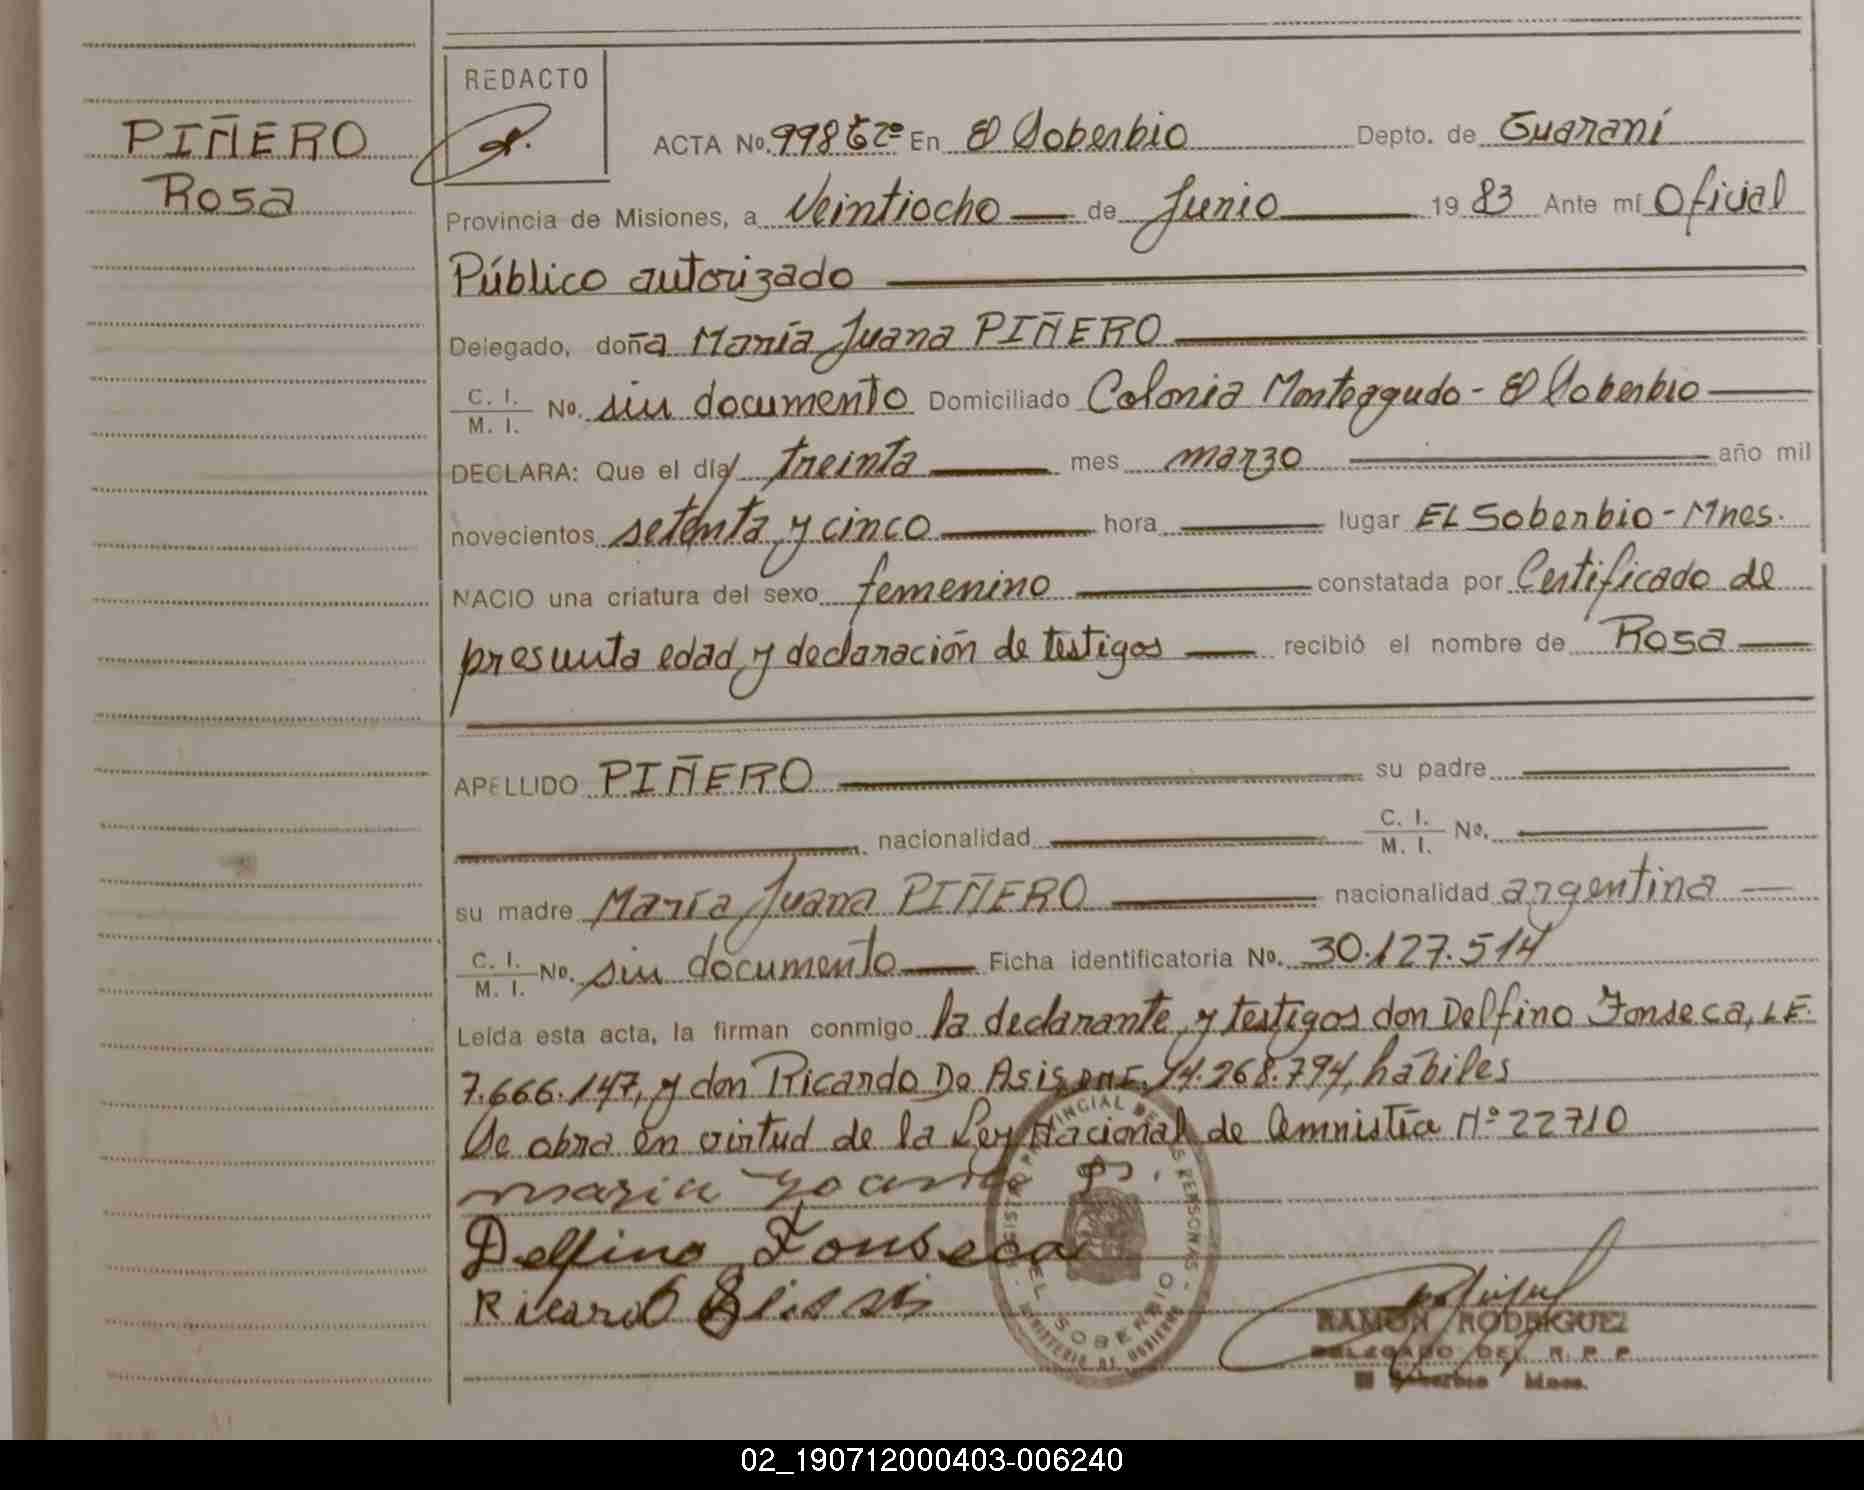 PIÑERO
Rosa
REDACTO
ACTA No. 998 Tº 2º En El Soberbio Depto. de Guaraní
Provincia de Misiones, a Veintiocho de Junio 19 83 Ante mí Oficial
Público autorizado
Delegado, doña María Juana PIÑERO
C. I. / M. I. No. sin documento Domiciliado Colonia Monteagudo - El Soberbio
DECLARA: Que el día treinta mes marzo año mil
novecientos setenta y cinco hora lugar EL Soberbio - Mnes.
NACIO una criatura del sexo femenino constatada por Certificado de
presunta edad y declaración de testigos recibió el nombre de Rosa
APELLIDO PIÑERO su padre
nacionalidad C. I. / M. I. No.
su madre María Juana PIÑERO nacionalidad argentina
C. I. / M. I. No. sin documento Ficha identificatoria No. 30.127.514
Leída esta acta, la firman conmigo la declarante y testigos don Delfino Fonseca, L.E.
7.666.147, y don Ricardo Do Asis DNI. 14.268.794, hábiles
Se obra en virtud de la Ley Nacional de Amnistía Nº 22710
Delfino Fonseca
REGISTRO PROVINCIAL DE LAS PERSONAS
EL SOBERBIO
MINISTERIO DE GOBIERNO
RAMON RODRIGUEZ
DELEGADO DEL R. P. P.
El Soberbio Mnes.
02_190712000403-006240